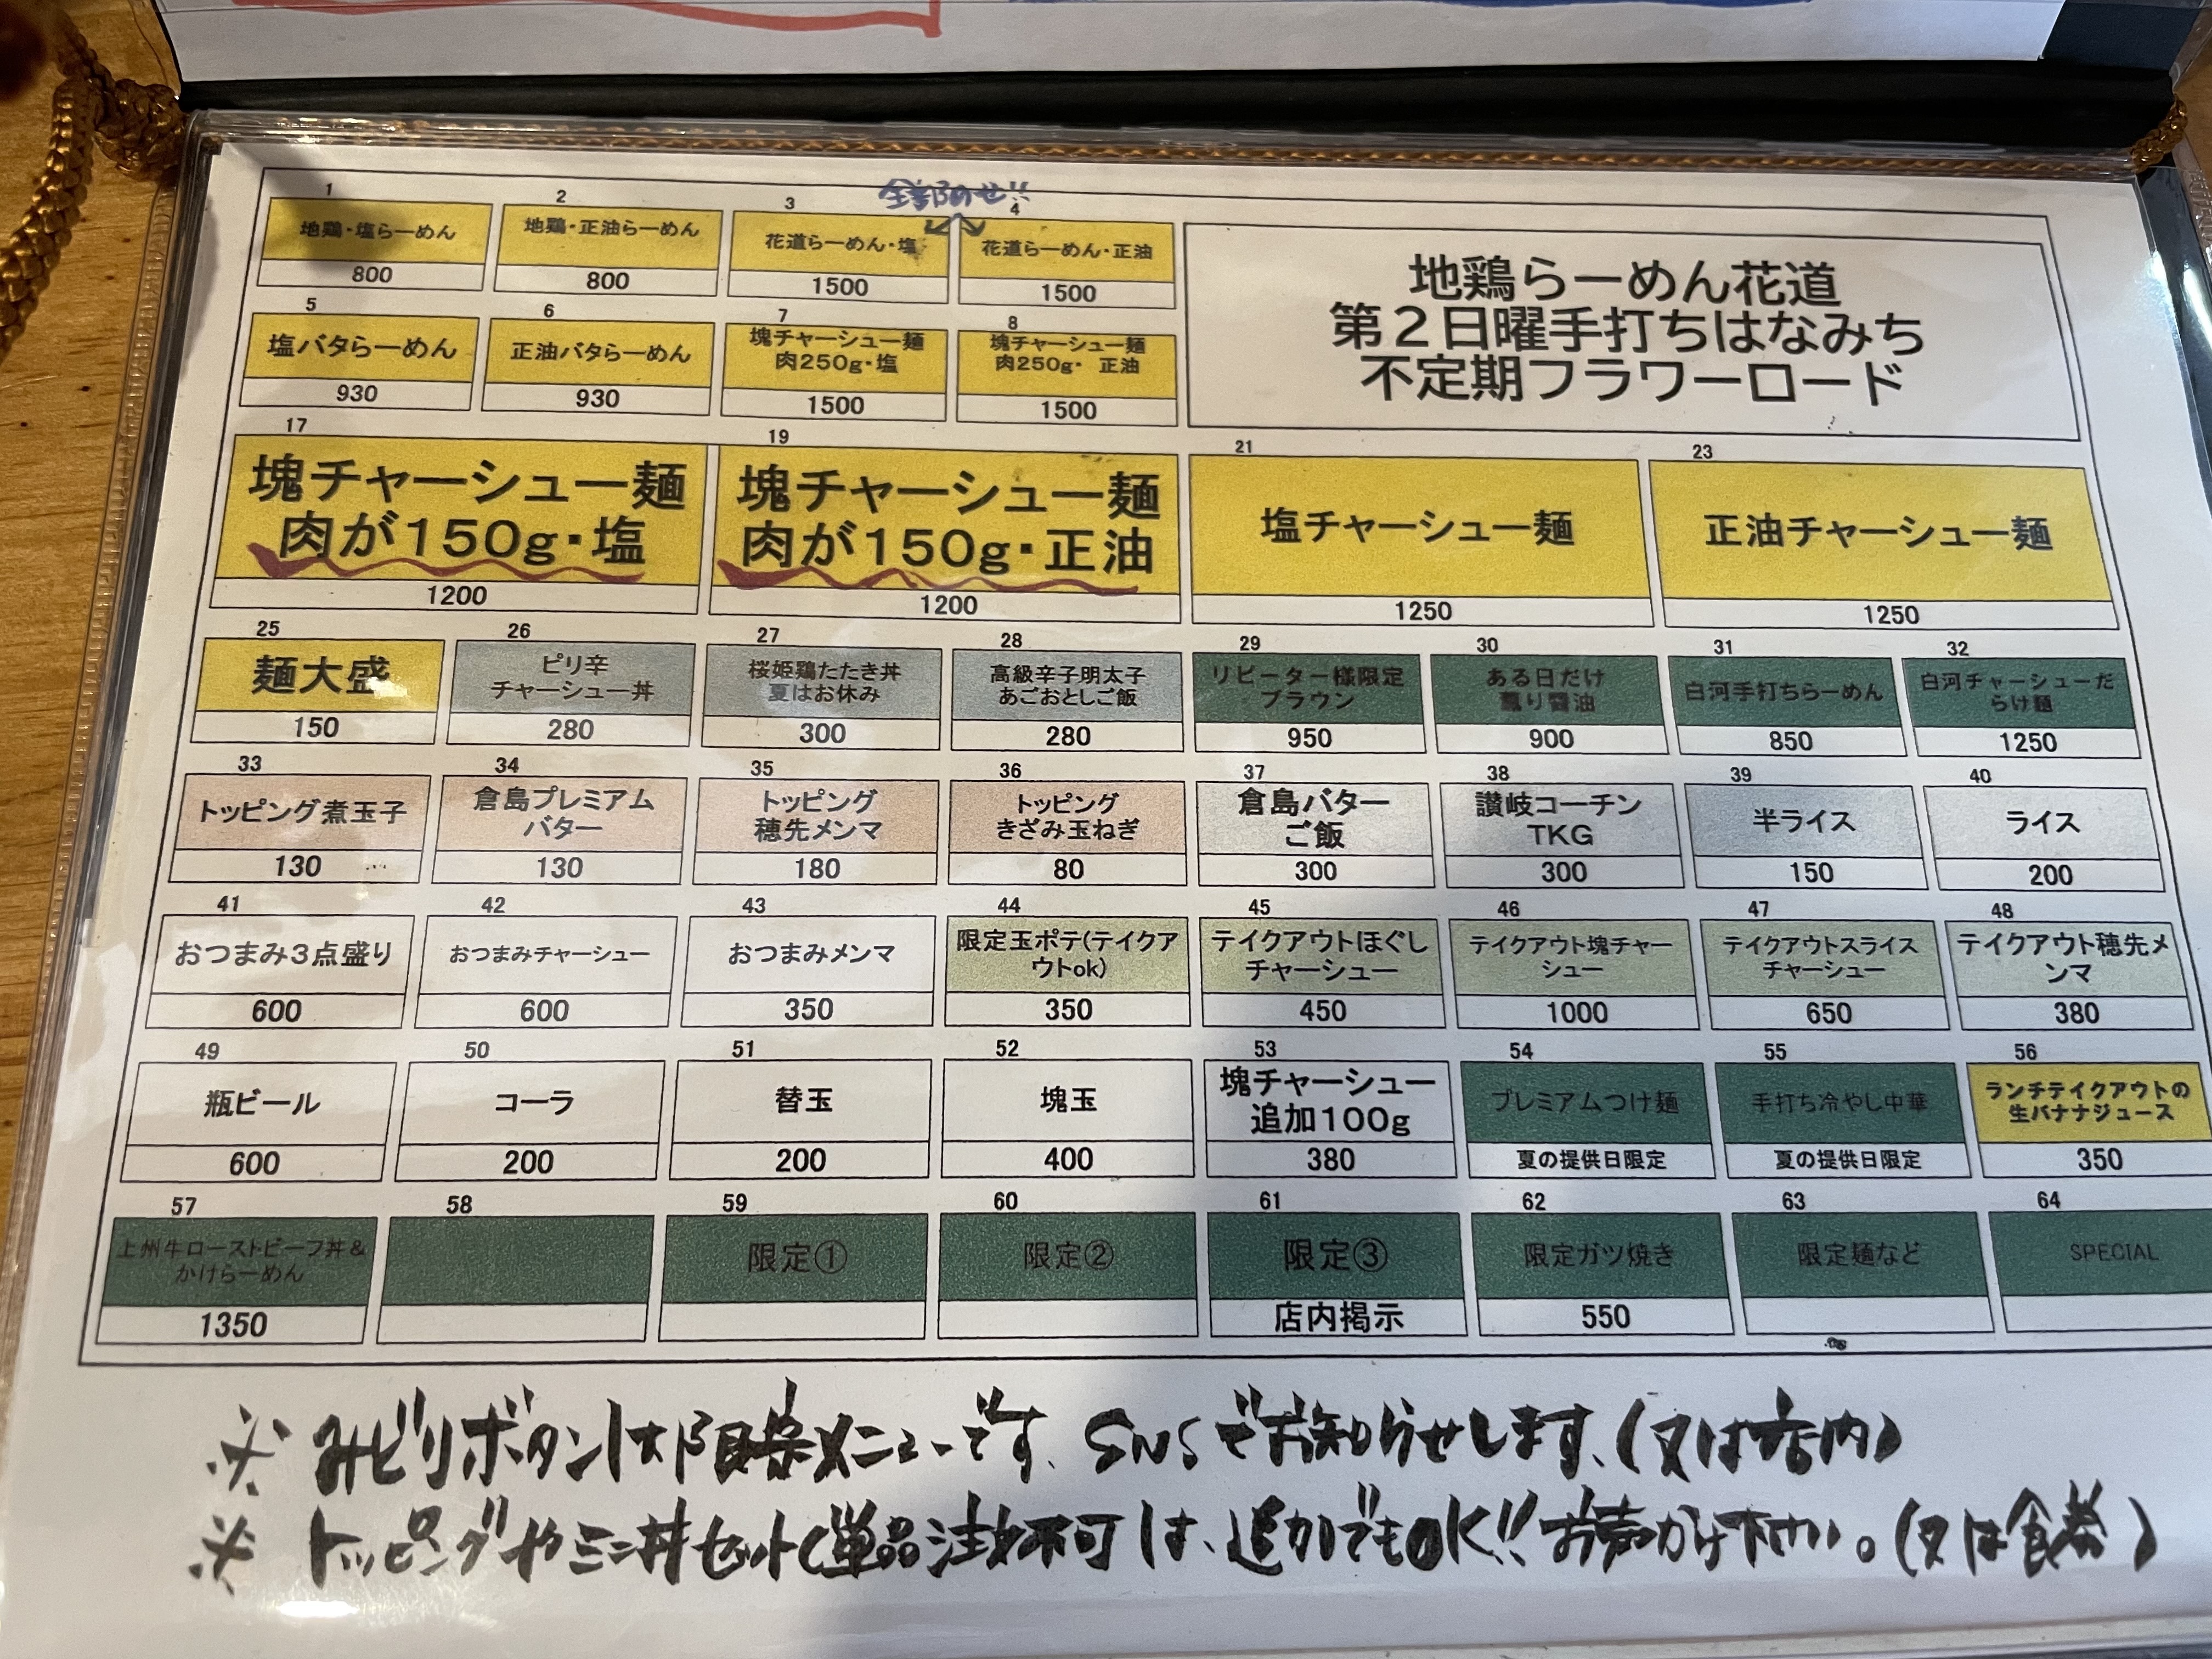 全部のせ!!
1
地鶏・塩らーめん
800
2
地鶏・正油らーめん
800
3
花道らーめん・塩
1500
4
花道らーめん・正油
1500
地鶏らーめん花道
第2日曜手打ちはなみち
不定期フラワーロード
5
塩バタらーめん
930
6
正油バタらーめん
930
7
塊チャーシュー麺
肉250g・塩
1500
8
塊チャーシュー麺
肉250g・ 正油
1500
17
塊チャーシュー麺
肉が150g・塩
1200
19
塊チャーシュー麺
肉が150g・正油
1200
21
塩チャーシュー麺
1250
23
正油チャーシュー麺
1250
25
麺大盛
150
26
ピリ辛
チャーシュー丼
280
27
桜姫鶏たたき丼
夏はお休み
300
28
高級辛子明太子
あごおとしご飯
280
29
リピーター様限定
ブラウン
950
30
ある日だけ
薫り醤油
900
31
白河手打ちらーめん
850
32
白河チャーシューだ
らけ麺
1250
33
トッピング煮玉子
130
34
倉島プレミアム
バター
130
35
トッピング
穂先メンマ
180
36
トッピング
きざみ玉ねぎ
80
37
倉島バター
ご飯
300
38
讃岐コーチン
TKG
300
39
半ライス
150
40
ライス
200
41
おつまみ3点盛り
600
42
おつまみチャーシュー
600
43
おつまみメンマ
350
44
限定玉ポテ(テイクア
ウトok)
350
45
テイクアウトほぐし
チャーシュー
450
46
テイクアウト塊チャー
シュー
1000
47
テイクアウトスライス
チャーシュー
650
48
テイクアウト穂先メ
ンマ
380
49
瓶ビール
600
50
コーラ
200
51
替玉
200
52
塊玉
400
53
塊チャーシュー
追加100g
380
54
プレミアムつけ麺
夏の提供日限定
55
手打ち冷やし中華
夏の提供日限定
56
ランチテイクアウトの
生バナナジュース
350
57
上州牛ローストビーフ丼&
かけらーめん
1350
58
59
限定①
60
限定②
61
限定③
店内掲示
62
限定ガツ焼き
550
63
限定麺など
64
SPECIAL
※ みどりボタンは限定メニューです、SNSでお知らせします、(又は店内)
※ トッピングやミニ丼セット(単品注文不可は、追加でもOK!!お声かけ下さい。(又は食券)